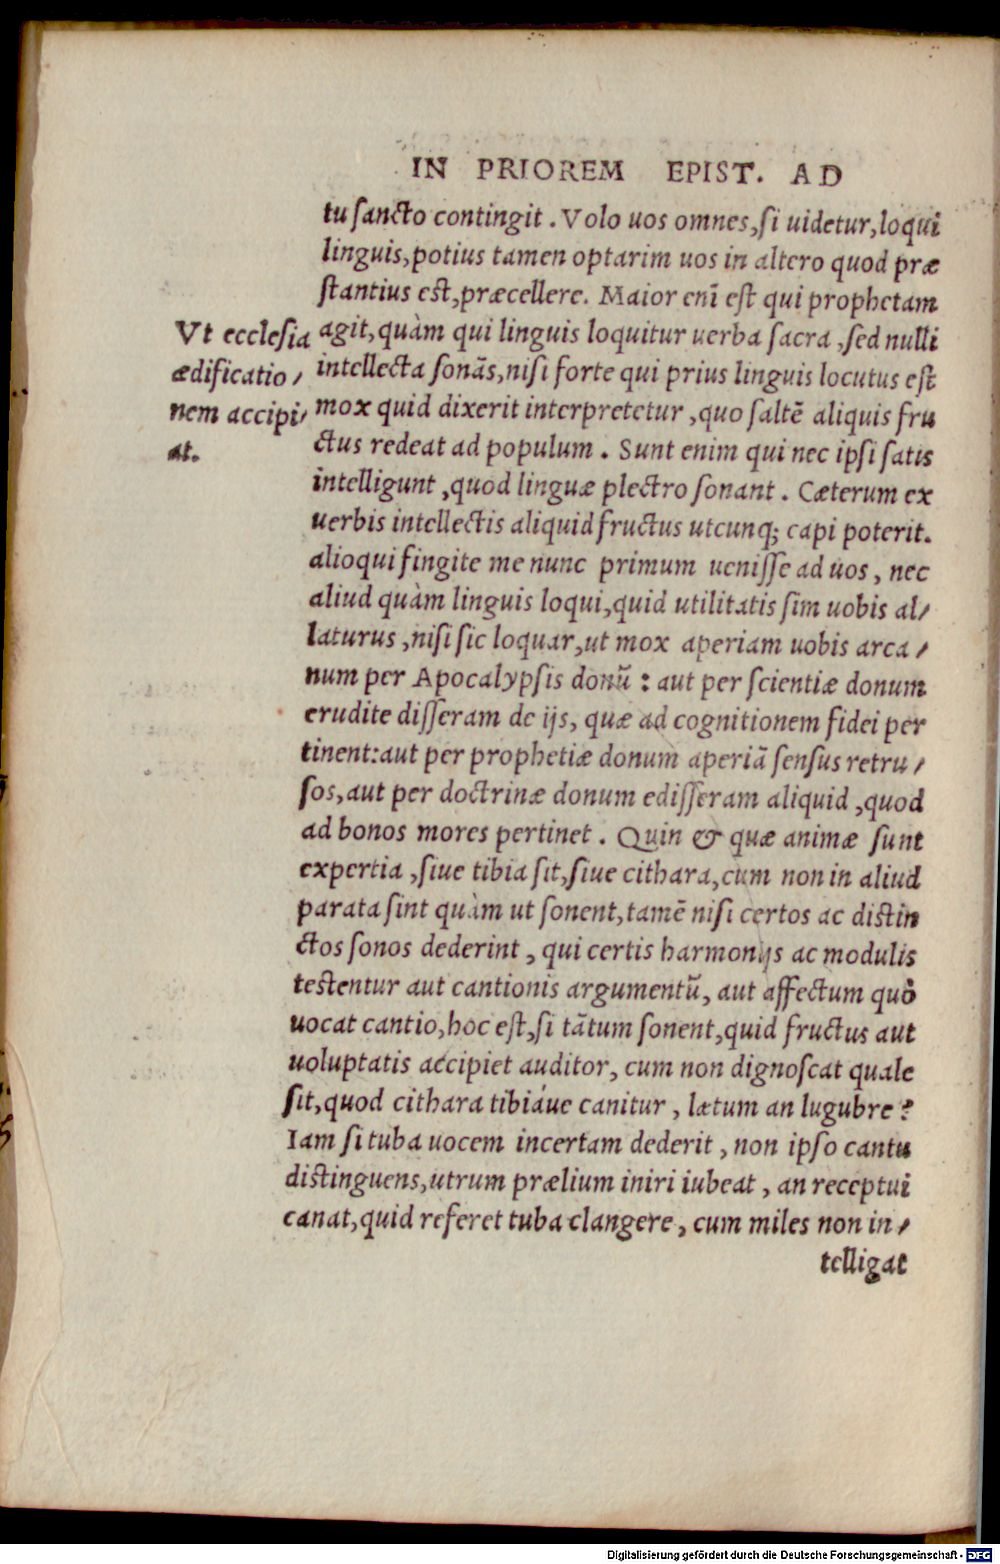 IN PRIOREM EPIST. AD
tu sancto contingit. Volo uos omnes, si uidetur, loqui
linguis, potius tamen optarim uos in altero quod præ
stantius est, præcellere. Maior enĩ est qui prophetam
agit, quàm qui linguis loquitur uerba sacra, sed nulli
intellecta sonãs, nisi forte qui prius linguis locutus est
mox quid dixerit interpretetur, quo saltẽ aliquis fru
ctus redeat ad populum. Sunt enim qui nec ipsi satis
intelligunt, quod linguæ plectro sonant. Cæterum ex
uerbis intellectis aliquid fructus utcunq; capi poterit.
alioqui fingite me nunc primum uenisse ad uos, nec
aliud quàm linguis loqui, quid utilitatis sim uobis al/
laturus, nisi sic loquar, ut mox aperiam uobis arca/
num per Apocalypsis donũ: aut per scientiæ donum
erudite disseram de ijs, quæ ad cognitionem fidei per
tinent: aut per prophetiæ donum aperiã sensus retru/
sos, aut per doctrinæ donum edisseram aliquid, quod
ad bonos mores pertinet. Quin & quæ animæ sunt
expertia, siue tibia sit, siue cithara, cum non in aliud
parata sint quàm ut sonent, tamẽ nisi certos ac distin
ctos sonos dederint, qui certis harmonijs ac modulis
testentur aut cantionis argumentũ, aut affectum quò
uocat cantio, hoc est, si tãtum sonent, quid fructus aut
uoluptatis accipiet auditor, cum non dignoscat quale
sit, quod cithara tibiáue canitur, lætum an lugubre?
Iam si tuba uocem incertam dederit, non ipso cantu
distinguens, utrum prælium iniri iubeat, an receptui
canat, quid referet tuba clangere, cum miles non in/
telligat
Vt ecclesia
ædificatio/
nem accipi/
at.
Digitalisierung gefördert durch die Deutsche Forschungsgemeinschaft - DFG